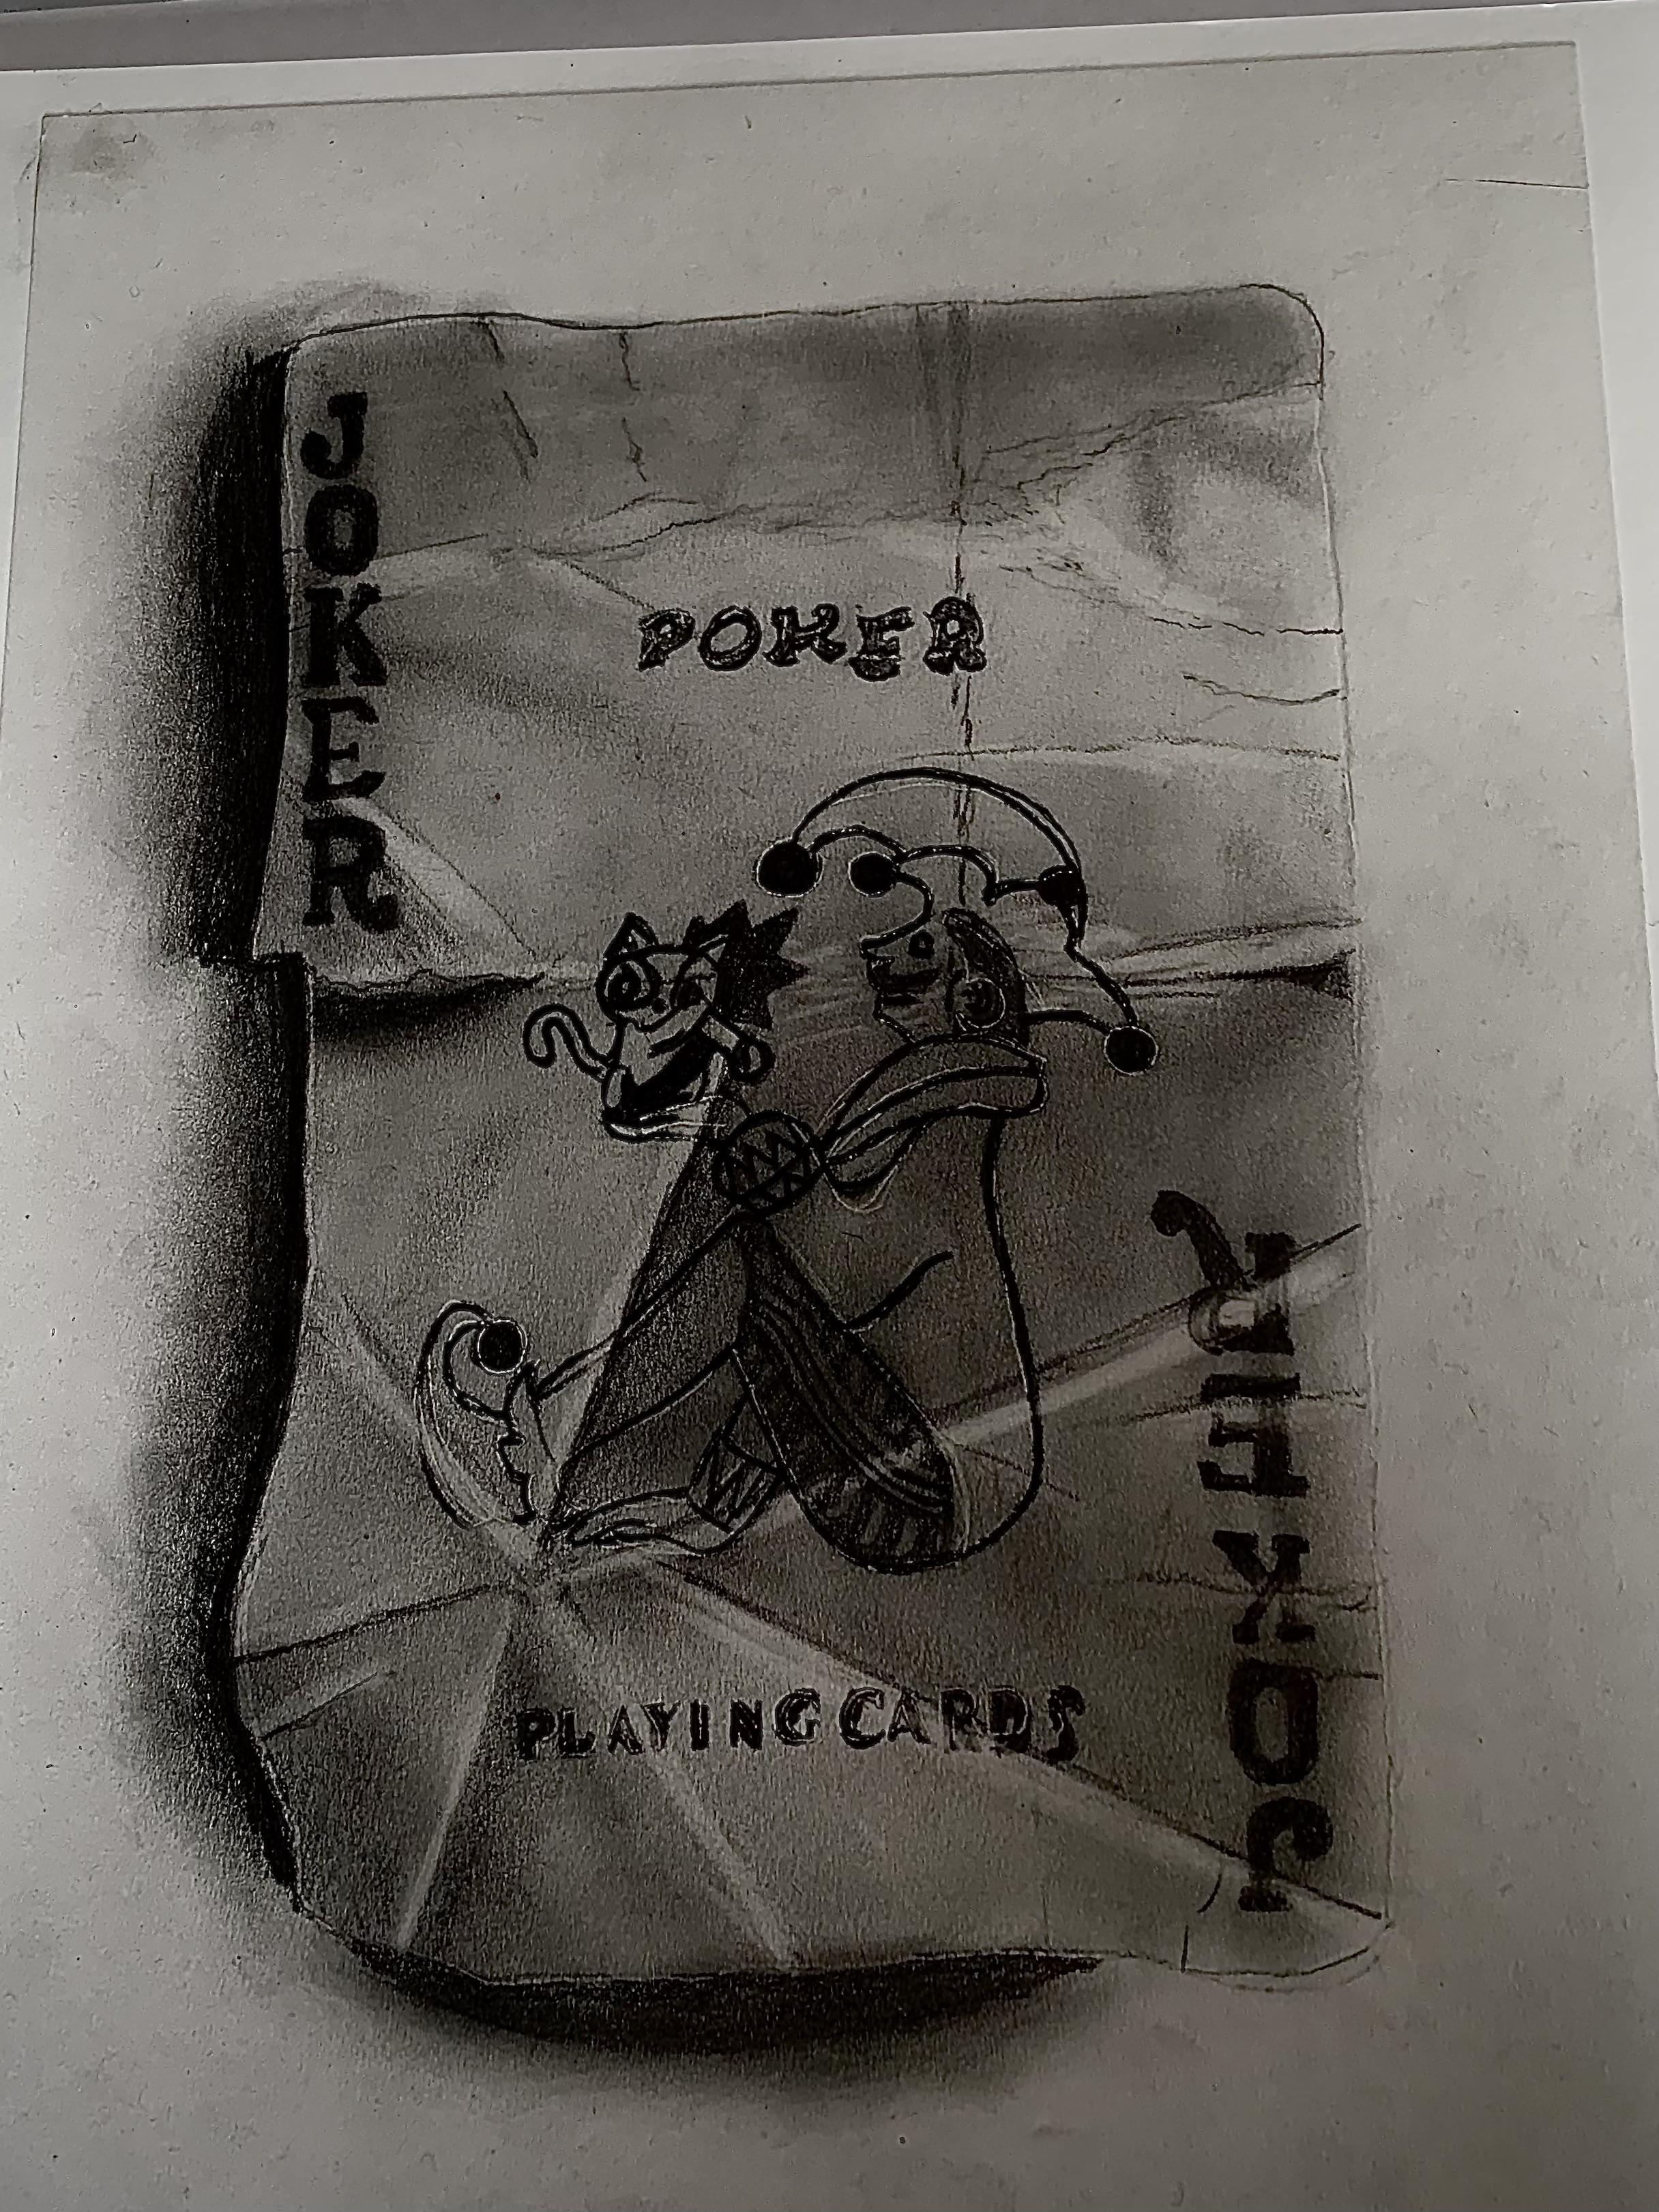 JOKER
POKER
PLAYING CARDS
JOKER